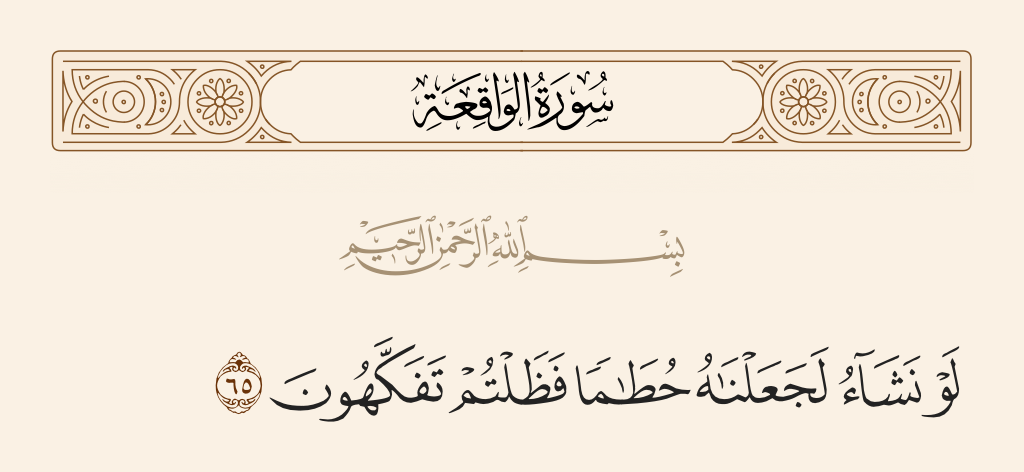 سُورَةُ الوَاقِعَةِ
بِسْمِ ٱللَّهِ ٱلرَّحْمَٰنِ ٱلرَّحِيمِ
لَوْ نَشَآءُ لَجَعَلْنَٰهُ حُطَٰمًا فَظَلْتُمْ تَفَكَّهُونَ ٦٥